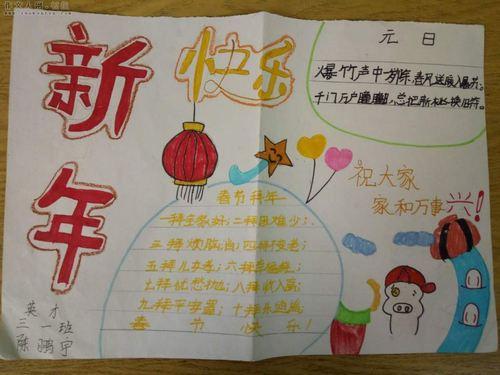 新年
快乐
元日
爆竹声中
春风送暖入屠苏。
千门万户曈曈日,总把新桃换旧符
祝大家
家和万事兴!
春节拜年
一拜全家好;二拜困难少;
三拜烦恼消;四拜不变老;
五拜儿女孝;六拜
七拜忧愁抛;八拜收入高;
九拜平安罩;十拜永逍遥
春节快乐!
英才
三一班
陈鹏宇